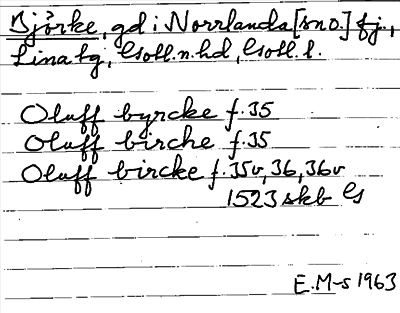 Björke, gd i Norrlanda [sn o.] fj.,
Lina tg, Gotl. n. hd, Gotl. l.
Oluff byrcke f. 35
Oluff birche f. 35
Oluff bircke f. 35v, 36, 36v
1523 skb Gs
E.M-s 1963